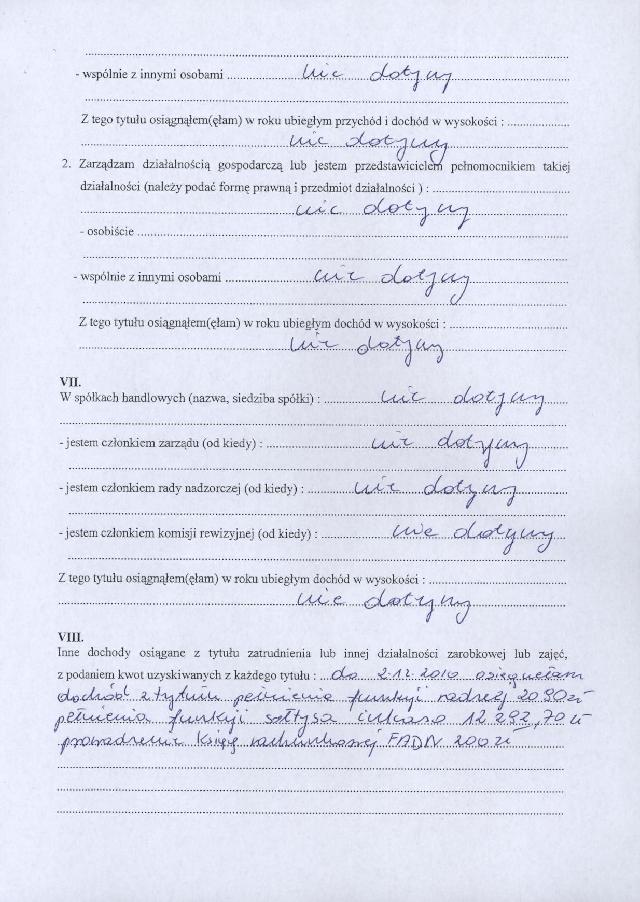 - wspólnie z innymi osobami nie dotyczy
Z tego tytułu osiągnąłem(ęłam) w roku ubiegłym przychód i dochód w wysokości :
nie dotyczy
2. Zarządzam działalnością gospodarczą lub jestem przedstawicielem pełnomocnikiem takiej
działalności (należy podać formę prawną i przedmiot działalności ) :
nie dotyczy
- osobiście
- wspólnie z innymi osobami nie dotyczy
Z tego tytułu osiągnąłem(ęłam) w roku ubiegłym dochód w wysokości :
nie dotyczy
VII.
W spółkach handlowych (nazwa, siedziba spółki) : nie dotyczy
- jestem członkiem zarządu (od kiedy) : nie dotyczy
- jestem członkiem rady nadzorczej (od kiedy) : nie dotyczy
- jestem członkiem komisji rewizyjnej (od kiedy) : nie dotyczy
Z tego tytułu osiągnąłem(ęłam) w roku ubiegłym dochód w wysokości :
nie dotyczy
VIII.
Inne dochody osiągane z tytułu zatrudnienia lub innej działalności zarobkowej lub zajęć,
z podaniem kwot uzyskiwanych z każdego tytułu : do 2.12.2010 osiągnęłam
dochód z tytułu pełnienia funkcji radnej 2090 zł
pełnienia funkcji sołtysa i inkaso 12 292,70 zł
prowadzenie Księg rachunkowej FADN 200 zł